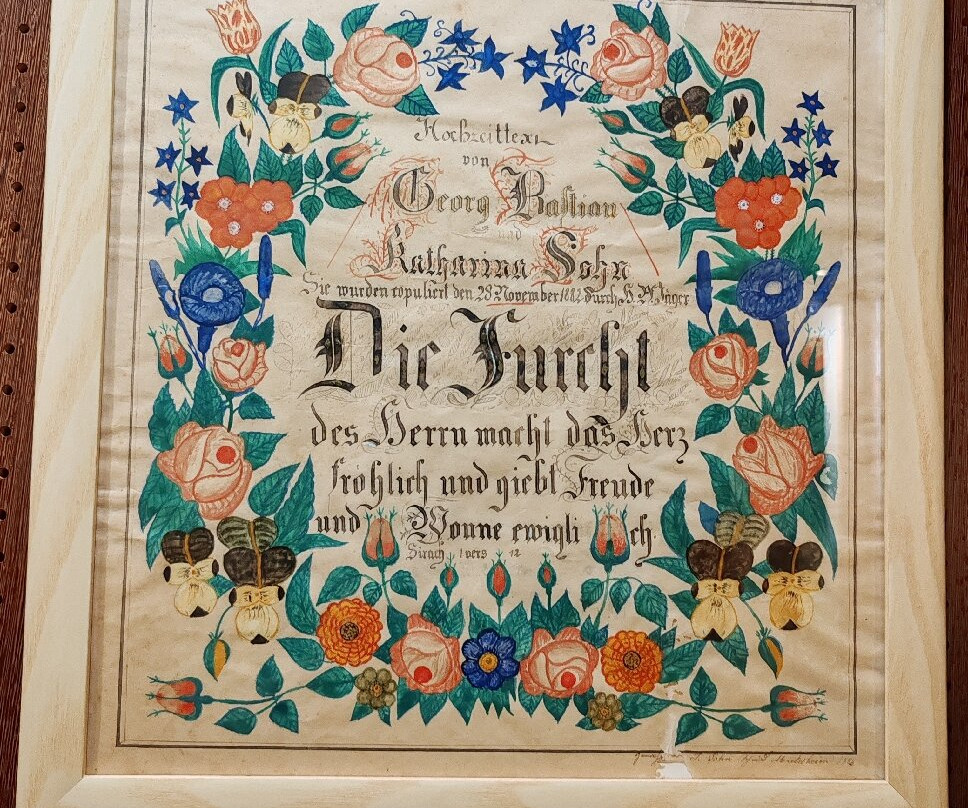 Hochzeittext
von
Georg Bastian
und
Katharina Sohn
Sie wurden copuliert den 28 November 1882 durch H. Pf.
Die Furcht
des Herrn macht das Herz
fröhlich und giebt Freude
und Wonne ewigli ch
Sirach 1 vers 12